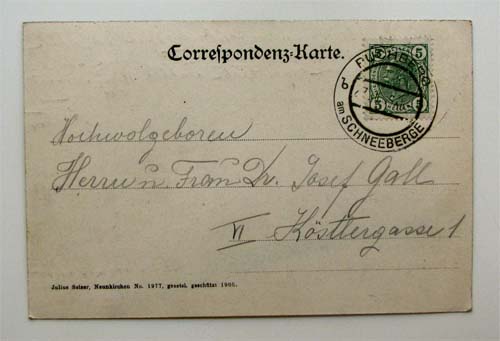 Correſpondenz-Karte.
5 5
PUCHBERG
am SCHNEEBERGE
b
5 5
Hochwolgeboren
Herrn u Frau Dr. Josef Gall
VI Köstlergasse 1
Julius Selzer, Neunkirchen No. 1977, gesetzl. geschützt 1905.